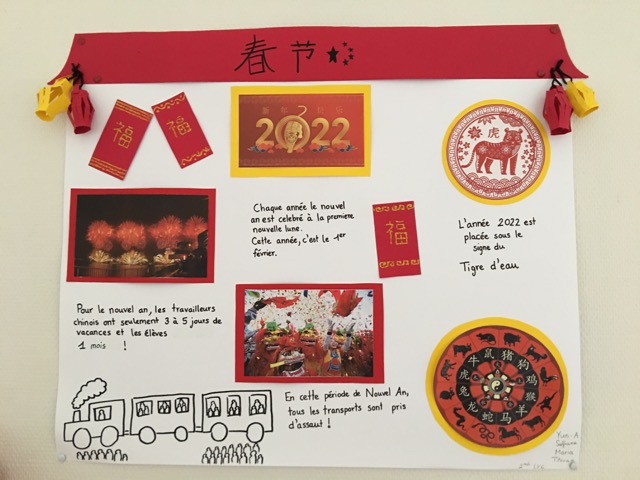 春节
福
福
2022
虎
Chaque année le nouvel
an est celebré à la première
nouvelle lune.
Cette année, c'est le 1er
février.
福
L'année 2022 est
placée sous le
signe du
Tigre d'eau
Pour le nouvel an, les travailleurs
chinois ont seulement 3 à 5 jours de
vacances et les élèves
1 mois !
En cette période de Nouvel An,
tous les transports sont pris
d'assaut !
鼠猪狗鸡猴羊马蛇龙兔虎牛
Yun-A
Maria